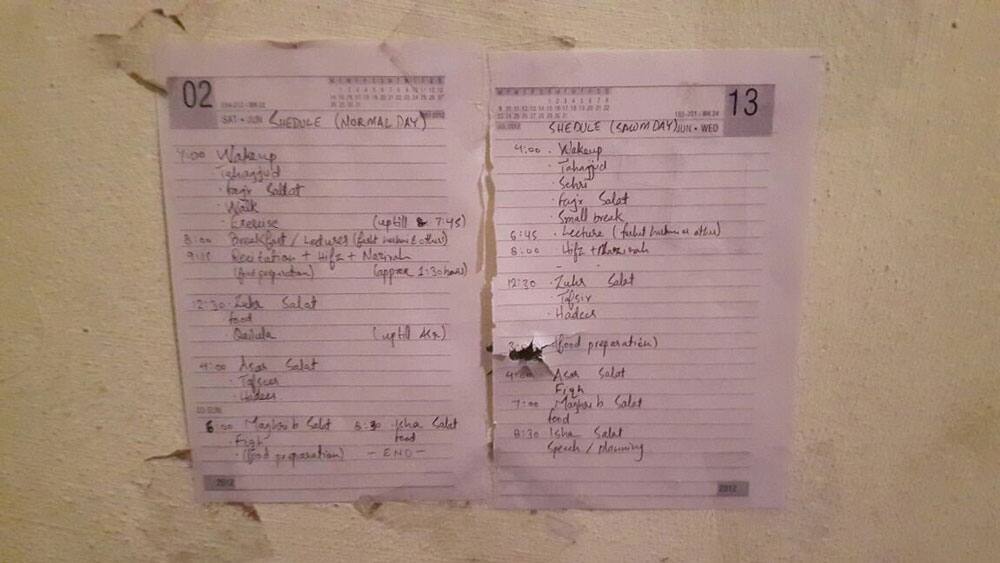 02
SAT • JUN
SHEDULE (NORMAL DAY)
4:00 Wakeup
• Tahajjud
• Fajr Sallat
• Walk
• Exercise (uptill 7:45)
8:00 Breakfast / Lectures (farhat hashmi & others)
9:15 Recitation + Hifz + Nazirah
(food preparation) (approx 1:30 hours)
12:30 • Zuhr Salat
food
• Qailula (uptill 4sx)
4:00 Asar Salat
• Tafseer
• Hadees
03-SUN
6:00 Maghrib Salat 8:30 • Isha Salat
• Fiqh food
• (food preparation) — END —
2012
13
JUN • WED
SHEDULE (SAWM DAY)
4:00 • Wakeup
• Tahajjud
• Sehri
• Fajr Salat
• Small break
6:45 • Lecture (farhat hashmi or other)
8:00 • Hifz + Nazirah
12:30 • Zuhr Salat
• Tafsir
• Hadees
(food preparation)
4:00 Asar Salat
Fiqh
7:00 Maghrib Salat
food
8:30 Isha Salat
Speech / planning
2012